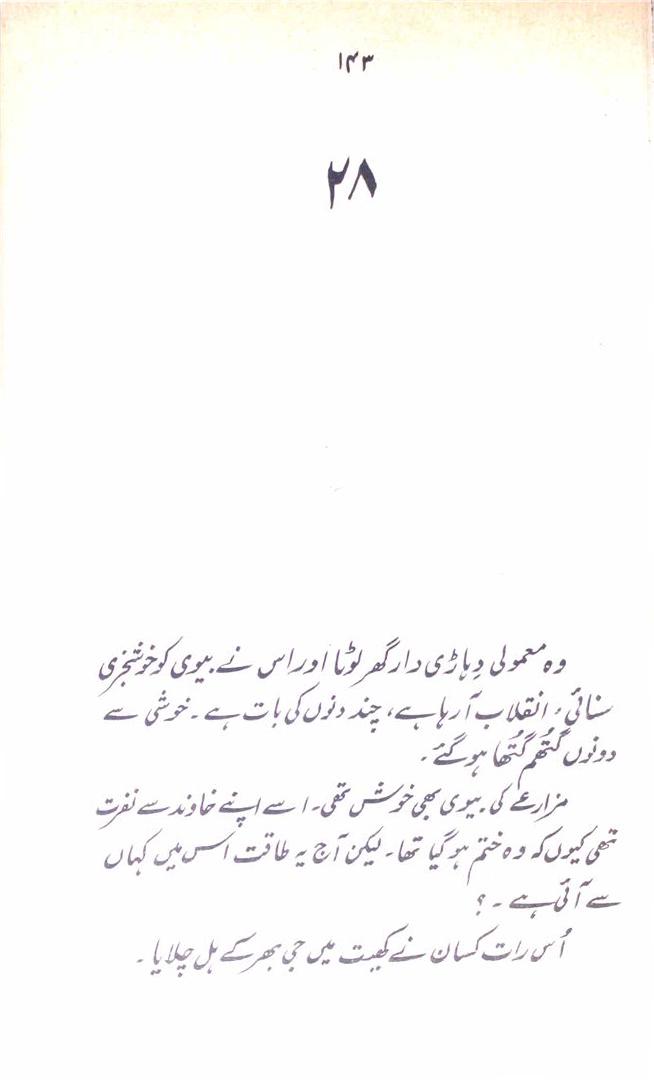 ۱۴۳
۲۸
وہ معمولی دِہاڑی دار گھر لوٹا اور اس نے بیوی کو خوشخبری
سنائی، انقلاب آ رہا ہے، چند دنوں کی بات ہے۔ خوشی سے
دونوں گُتھم گُتھا ہو گئے۔
مزارعے کی بیوی بھی خوش تھی۔ اسے اپنے خاوند سے نفرت
تھی کیوں کہ وہ ختم ہو گیا تھا۔ لیکن آج یہ طاقت اس میں کہاں
سے آئی ہے۔؟
اُس رات کسان نے کھیت میں جی بھر کے ہل چلایا۔